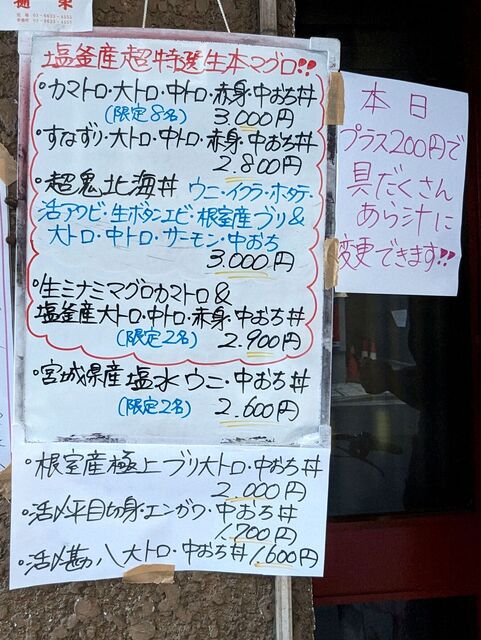 塩釜産超特選生本マグロ!!
・カマトロ・大トロ・中トロ・赤身・中おち丼
(限定8名) 3,000円
・すなずり・大トロ・中トロ・赤身・中おち丼
2.800円
・超鬼北海丼 ウニ・イクラ・ホタテ・
活アワビ・生ボタンエビ・根室産ブリ&
大トロ・中トロ・サーモン・中おち
3,000円
・生ミナミマグロカマトロ&
塩釜産大トロ・中トロ・赤身・中おち丼
(限定2名) 2.900円
・宮城県産塩水ウニ・中おち丼
(限定2名) 2.600円
・根室産極上ブリ大トロ・中おち丼
2,000円
・活〆平目切身・エンガワ・中おち丼
1.700円
・活〆勘八大トロ・中おち丼 1,600円
本日
プラス200円で
具だくさん
あら汁に
変更できます!!